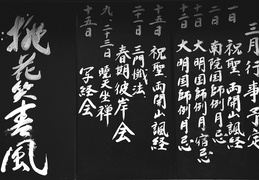 三月行事予定
一日 祝聖 両開山諷経
二日 南院国師例月忌
十一日 大明国師例月宿忌
十二日 大明国師例月忌
十五日 祝聖 両開山諷経
二十日 三門懺法
春期彼岸会
九、二十三日 暁天坐禅
十五日 写経会
桃花笑春風